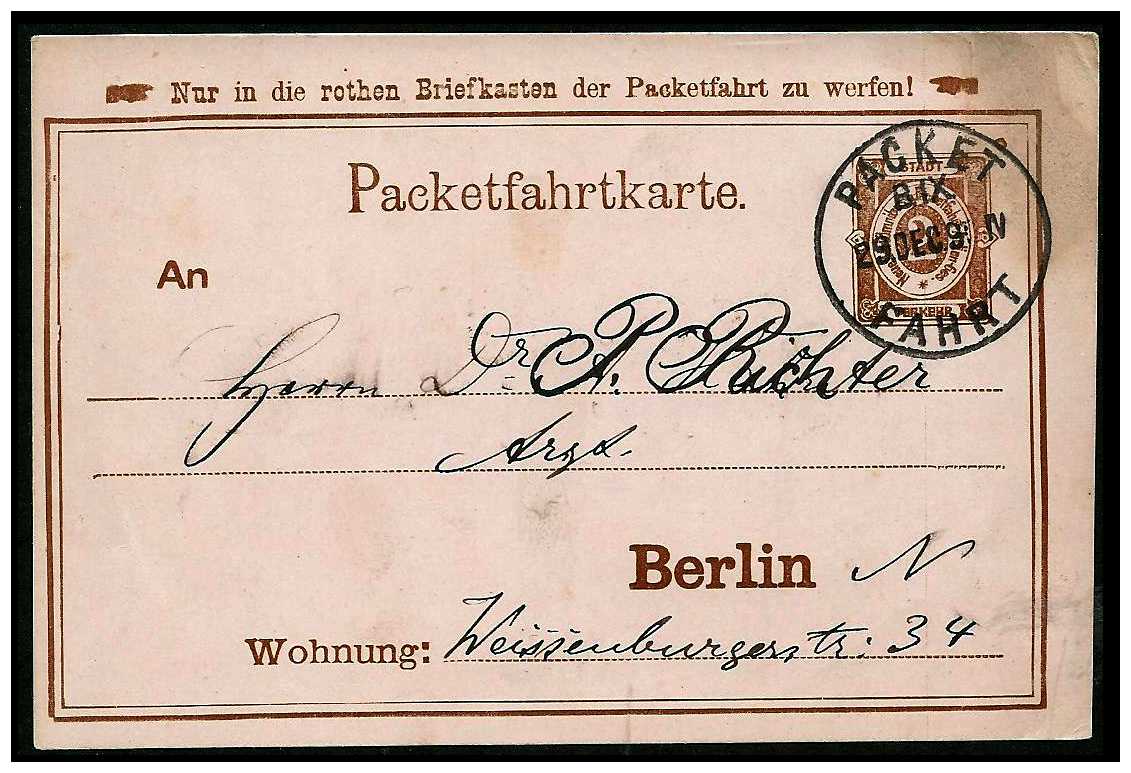 Nur in die rothen Briefkasten der Packetfahrt zu werfen!
Packetfahrtkarte.
STADT
VERKEHR
PACKET
29.DEC.9 N
FAHRT
An
Herrn Dr. A. Richter
Arzt.
Berlin N
Wohnung: Weissenburgerstr: 34